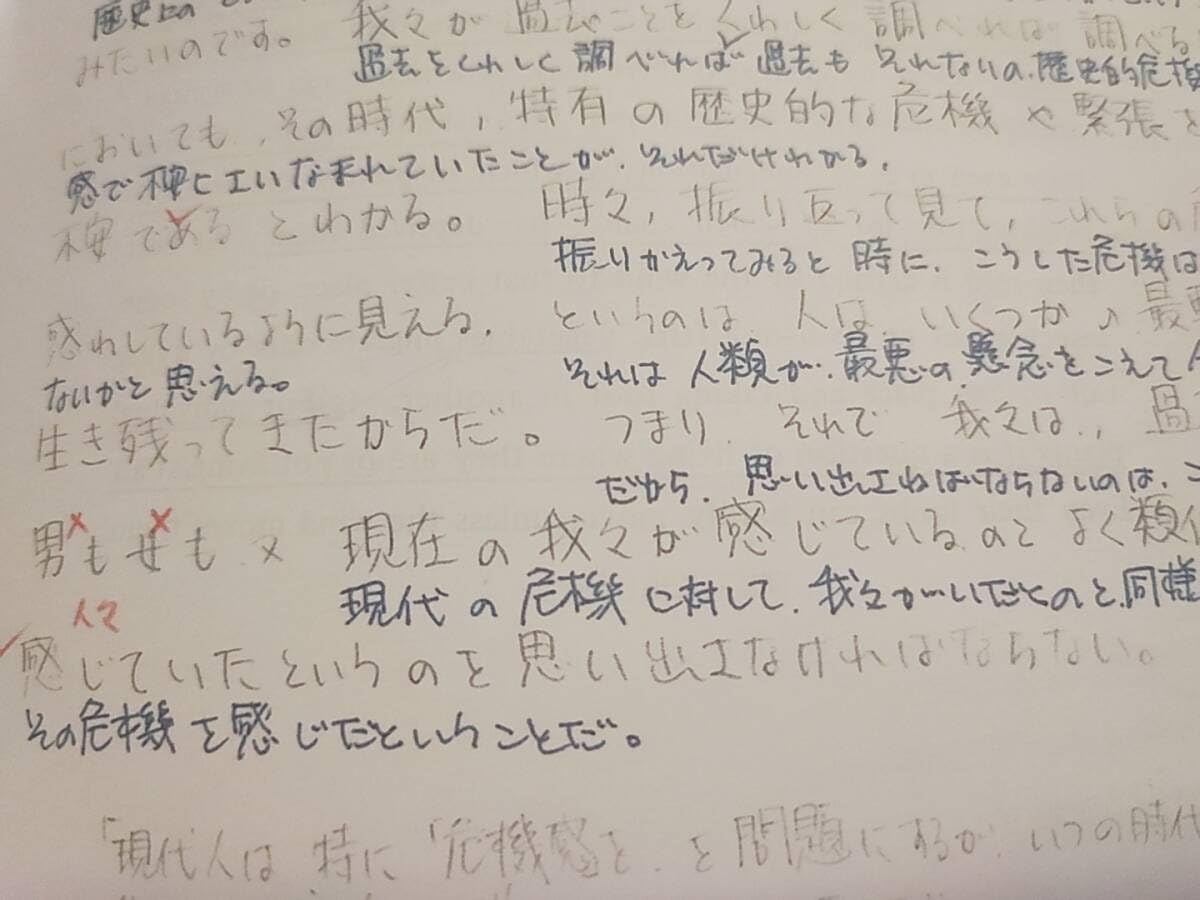 歴史上の
みたいのです。 我々が 過去ことを くわしく 調べれば 調べる
過去をくわしく 調べれば 過去も それないの、歴史的危機
においても、その時代、特有の歴史的な危機や緊張を
感で 埋とエいなまれていたことが、それだけわかる。
である とわかる。 時々、振り返って見て、これらの
振りかえってみると 時に、こうした危機は
惑わしているように見える。 というのは、人は、いくつか 最悪
ないかと思える。 それは 人類が、最悪の懸念をこえて
生き残ってきたからだ。 つまり、それで 我々は、過
だから、思い出エねばならないのは、こ
男も せも × 現在の我々が感じているのと よく類似
人々 現代の危機に対して、我々がいだくのと、同様
感じていたというのを思い出さなければならない。
その危機を感じだということだ。
「現代人は 特に「危機感を、を問題にするが、いつの時代